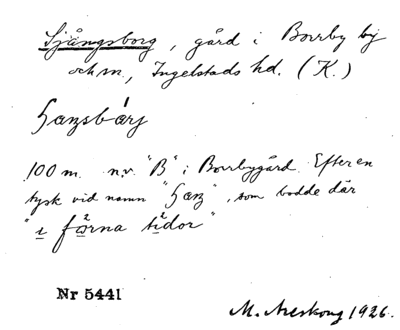 Sjångsborg, gård i Borrby by
och sn, Ingelstads hd. (K.)
100 m. n.v. "B" i Borrbygård. Efter en
tysk vid namn , som bodde där
"i förna tidor"
Nr 5441
M. Areskoug 1926.